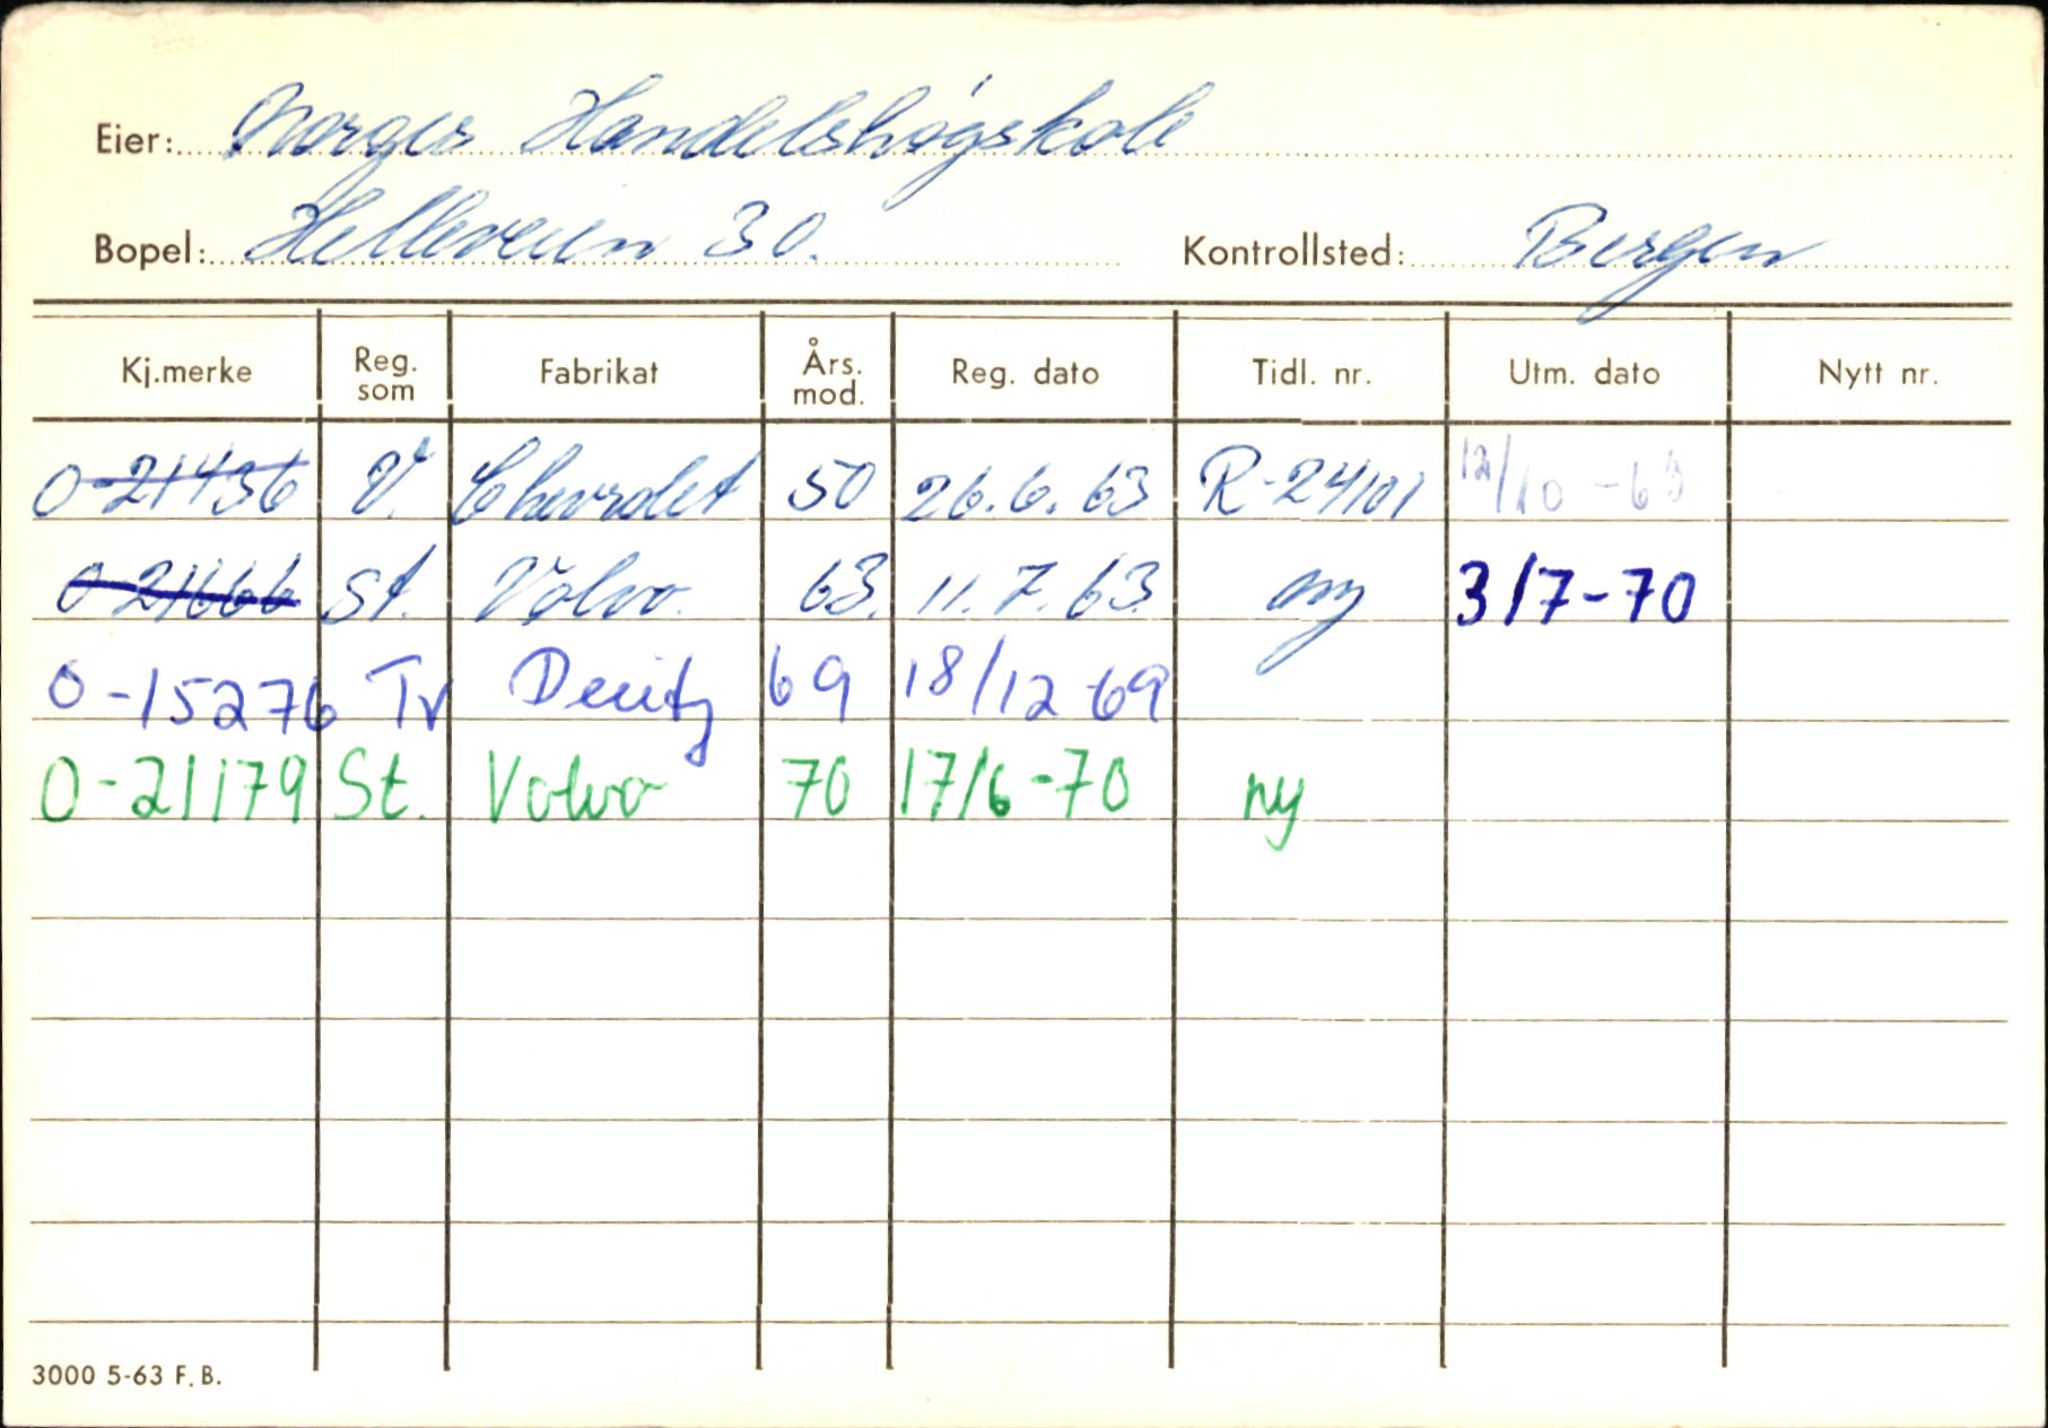 Eier: Norges Handelshøgskole
Bopel: Helleveien 30. Kontrollsted: Bergen
Kj.merke Reg. som Fabrikat Års. mod. Reg. dato Tidl. nr. Utm. dato Nytt nr.
O-21436 V. Chevrolet 50 26.6.63 R-24101 12/10-63
O-21666 St. Volvo. 63. 11.7.63 ny 3/7-70
O-15276 Tr Deutz 69 18/12 69
O-21179 St. Volvo 70 17/6-70 ny
3000 5-63 F.B.